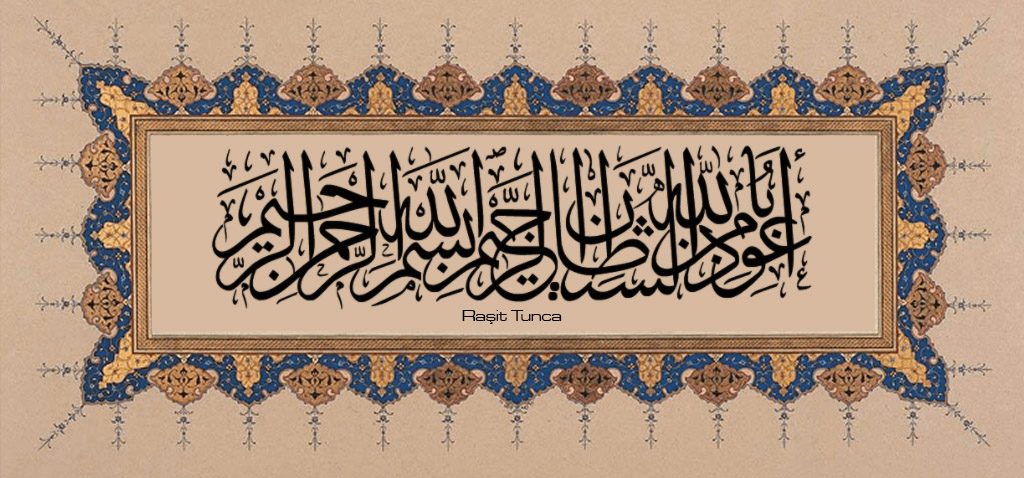 أعوذ بالله من الشيطان الرجيم بسم الله الرحمن الرحيم
Raşit Tunca